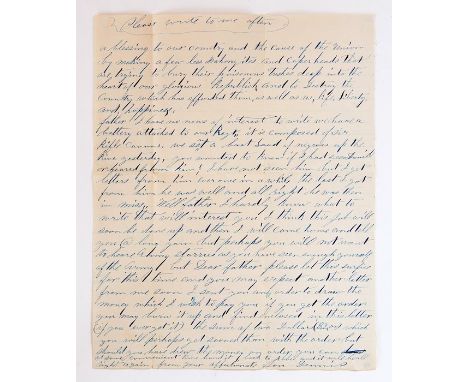 Please write to me often
a blessing to our country and the cause of the Union
by making a few less and Copper heads that
are trying to bury their poisenous tushes deep into the
heart of our glorious Republick and to Destroy the
Country which has afforded them, as well as us, life, liberty
and happiness,
father I have no news of interest to write we have a
battery attached to our Reg't it is composed of six
Rifle Cannons. we sent a boat load of negroes up the
river yesterday, you wanted to know if I had
or heard from him? I have not seen him but I get
letters from him evrance in a while the last I got
from him he was well and all right he was then
in miss, Well father I hardly know what to
write that will interest you I think this Job will
soon be done up and then I will come home and tell
you a long yarn but perhaps you will not want
to hear of many stories as you have seen enough yourself
of the Army but Dear father please let this suffice
for this time and you may expect another letter
from me soon I sent you any order to draw the
money which I wish to pay you if you get the order
you may burn it up and find inclosed in this letter
(if you ever get it) the sume of two dollars which
you will perhaps get sooner than with the order but
should you have drew the money on my order you can
at some convenient time send it back to
right again, from your affectionate Son Dennis